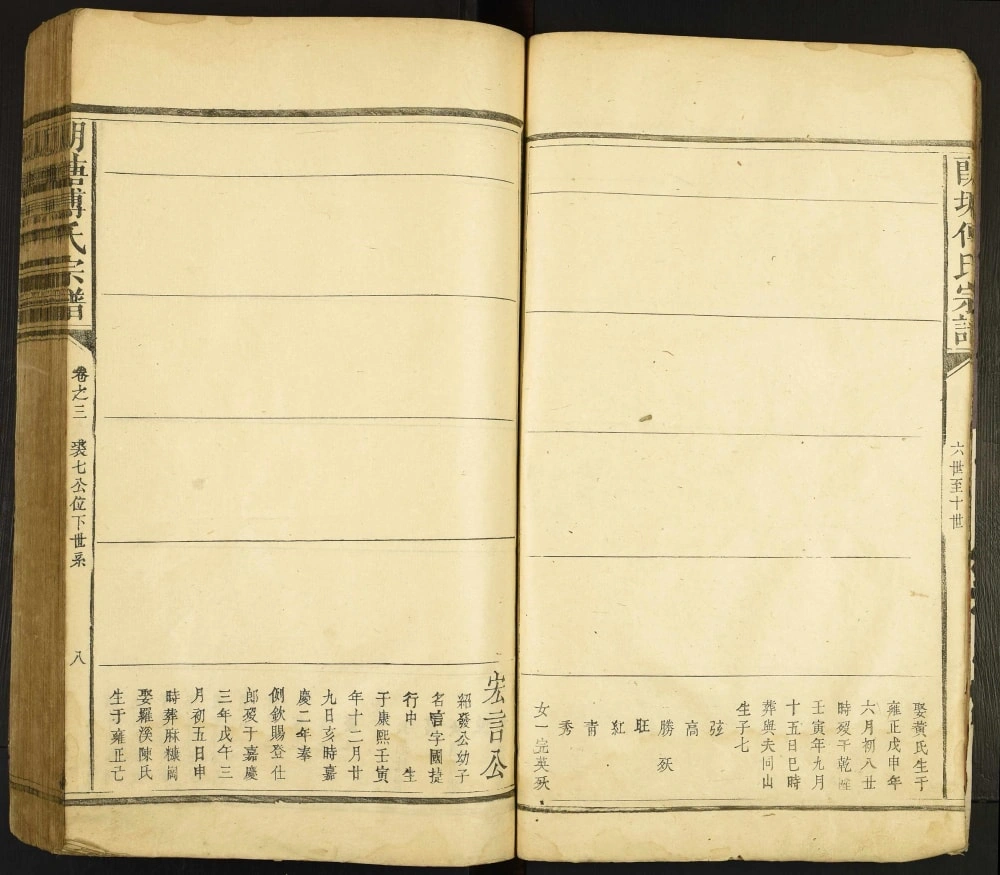 六世至十世
娶黃氏生于
雍正戊申年
六月初八丑
時歿于乾隆
壬寅年九月
十五日巳時
葬與夫同山
生子七
弦
高
勝 殀
旺
紅
青
秀
女一完英殀
宏言公
紹發公幼子
名言字國捷
行中 生
于康熙壬寅
年十二月廿
九日亥時嘉
慶二年奉
例欽賜登仕
郎歿于嘉慶
三年戊午三
月初五日申
時葬麻糠岡
娶羅溪陳氏
生于雍正
塘傅氏宗譜
卷之三 裘七公位下世系 八